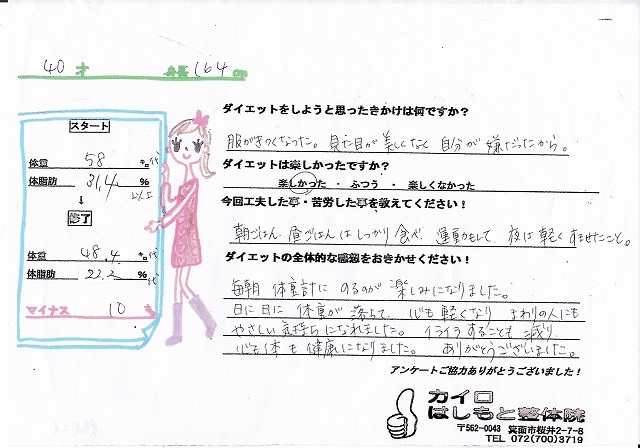 40 才 身長 164 cm
スタート
体重 58 キロ代
体脂肪 31.4 %
以上
↓
終了
体重 48.4 キロ代
体脂肪 22.2 % 代
マイナス 10 キロ
ダイエットをしようと思ったきかけは何ですか？
服がきつくなった。見た目が美しくなく 自分が嫌だったから。
ダイエットは楽しかったですか？
楽しかった ・ ふつう ・ 楽しくなかった
今回工夫した事・苦労した事を教えてください！
朝ごはん、昼ごはんはしっかり食べ 運動もして、夜は軽くすませたこと。
ダイエットの全体的な感想をおきかせください！
毎朝 体重計に のるのが 楽しみになりました。
日に日に 体重が 落ちて、心も軽くなり まわりの人にも
やさしい気持ちになれました。イライラすることも減り、
心も体も健康になりました。 ありがとうございました。
アンケートご協力ありがとうございました！
カイロ
はしもと整体院
〒562-0043 箕面市桜井2-7-8
TEL 072(700)3719